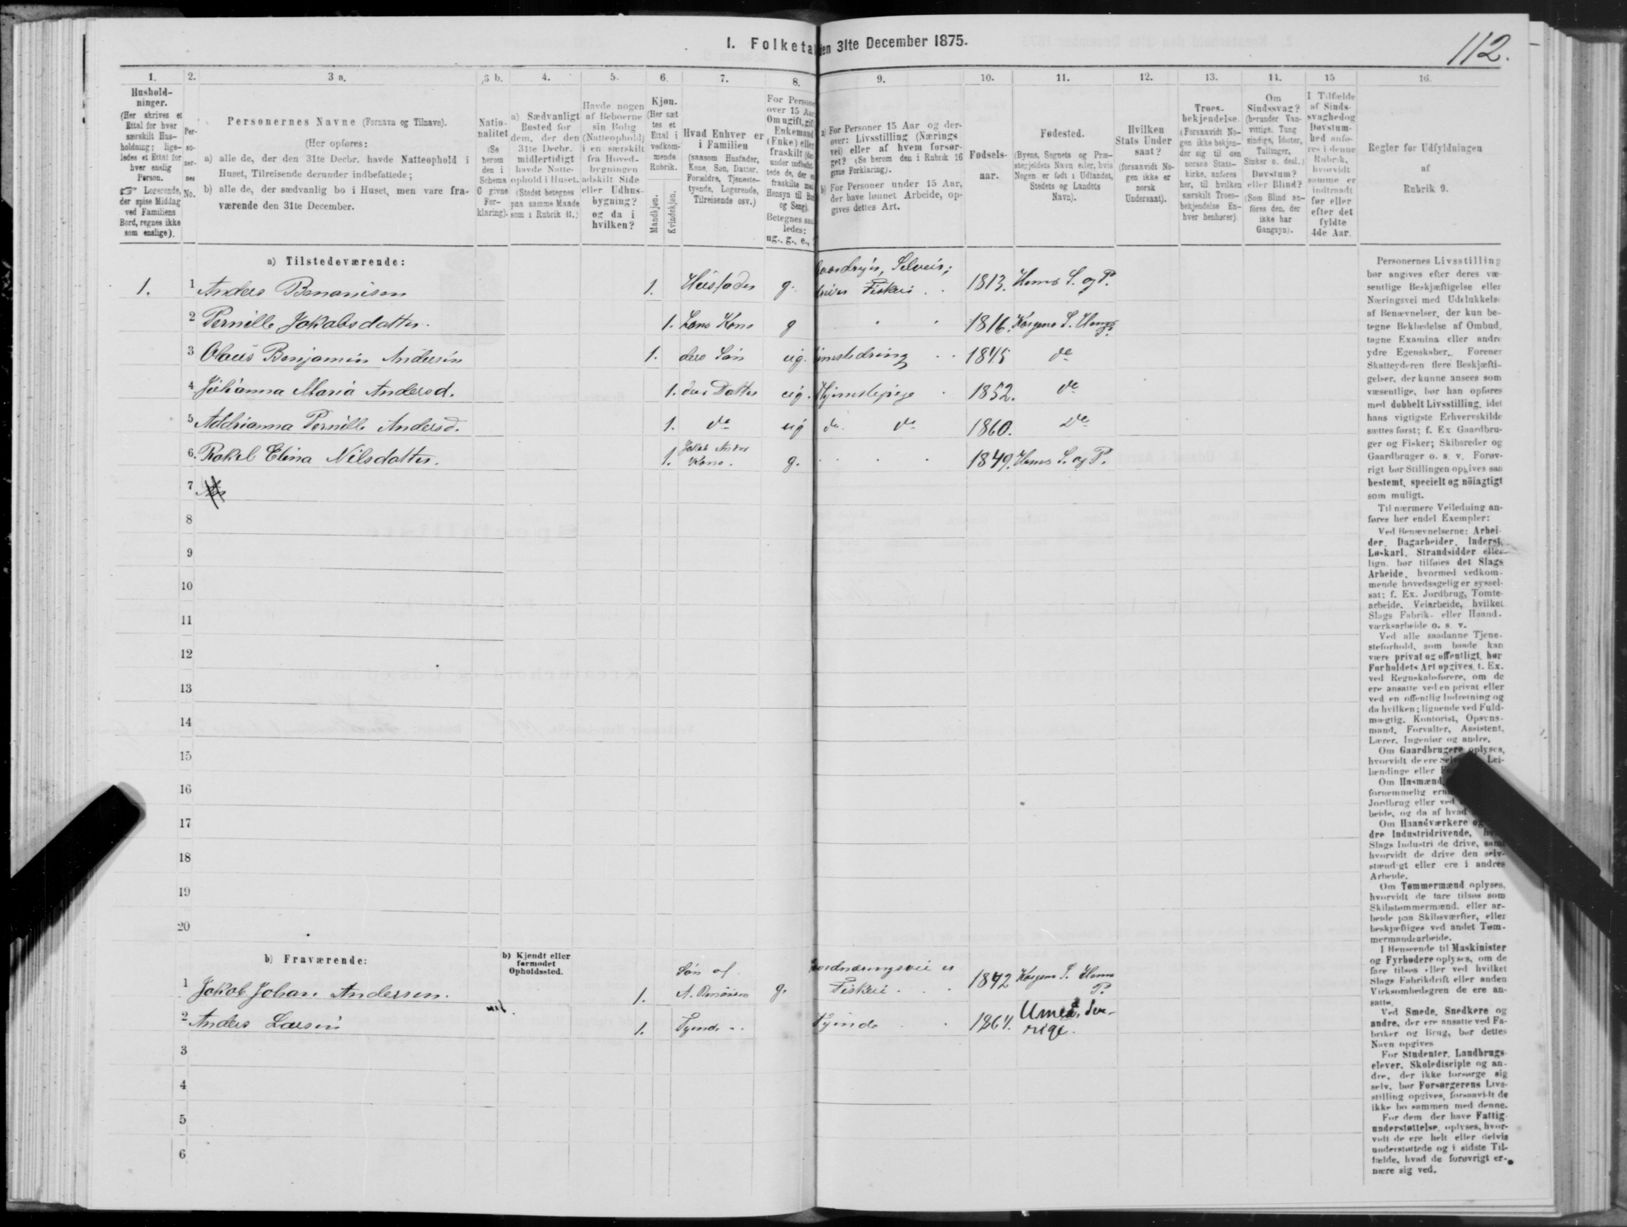 112.
I. Folketal den 31te December 1875.
1. 2. 3 a. 3 b. 4. 5. 6. 7. 8. 9. 10. 11. 12. 13. 14. 15 16.
Husholdninger.
(Her skrives et
Ettal for hver
særskilt Husholdning; ligeledes et Ettal for
hver enslig
Person.
☞ Logerende,
der spise Middag
ved Familiens
Bord, regnes ikke
som enslige).
Personernes No.
Personernes Navne (Fornavn og Tilnavn).
(Her opføres:
a) alle de, der den 31te Decbr. havde Natteophold i
Huset, Tilreisende derunder indbefattede;
b) alle de, der sædvanlig bo i Huset, men vare fraværende den 31te December.
Nationalitet
(Se
herom
den i
Schema
6 givne
Forklaring).
a) Sædvanligt
Bosted for
dem, der den
31te Decbr.
midlertidigt
havde Natteophold i Huset.
(Stedet betegnes
paa samme Maade
som i Rubrik 11.)
Havde nogen
af Beboerne
sin Bolig
(Natteophold)
i en særskilt
fra Hovedbygningen
adskilt Side
eller Udhusbygning?
og da i
hvilken?
Kjøn.
(Her sættes et
Ettal i
vedkommende
Rubrik.
Mandkjøn.
Kvindekjøn.
Hvad Enhver er
i Familien
(saasom Husfader,
Kone, Søn, Datter,
Forældre, Tjenestetyende, Logerende,
Tilreisende osv.)
For Personer
over 15 Aar
Om ugift, gift
Enkemand
(Enke) eller
fraskilt
Betegnes saaledes:
ug., g., e.,
a) For Personer 15 Aar og derover: Livsstilling (Næringsvei) eller af hvem forsørget? (Se herom den i Rubrik 16
givne Forklaring).
b) For Personer under 15 Aar,
der have lønnet Arbeide, opgives dettes Art.
Fødselsaar.
Fødested.
(Byens, Sognets og Præstegjældets Navn eller, hvis
Nogen er født i Udlandet,
Stedets og Landets
Navn).
Hvilken
Stats Undersaat?
(forsaavidt Nogen ikke er
norsk
Undersaat).
Troesbekjendelse.
(Forsaavidt Nogen ikke bekjender sig til den
norske Statskirke, anføres
her, til hvilken
særskilt Troesbekjendelse Enhver henhører).
Om
Sindssvag?
(herunder Vanvittige, Tungsindige, Idioter,
Tullinger,
Sinker o. desl.)
Døvstum?
eller Blind?
(Som Blind anføres den, der
ikke har
Gangsyn).
I Tilfælde
af Sindssvaghed og
Døvstumhed anføres i denne
Rubrik,
hvorvidt
samme er
indtraadt
før eller
efter det
fyldte
4de Aar.
Regler for Udfyldningen
af
Rubrik 9.
a) Tilstedeværende:
1. 1 Anders Benonisen 1. Husfader g. Gaardbr, Selveir; driver Fiskeri 1813. Hemnes S. og P.
2 Pernille Jakobsdatter. 1. hans Kone g 1816. Korgens S. Hemnes P.
3 Olaus Benjamin Andersen 1. deres Søn ug. 1845 do
4 Johanna Maria Andersd. 1. deres Datter ug. Hjemmepige 1852. do
5 Addrianna Pernille Andersd. 1. do ug do. do 1860. do
6. Rakel Elina Nilsdatter. 1. Jakob Anders Kone. g. 1849. Hemnes S. og P.
7
8
9
10
11
12
13
14
15
16
17
18
19
20
b) Fraværende:
b) Kjendt eller
formodet
Opholdssted.
1 Jakob Johan Andersen. 1. Søn af A. Benonisen g. Jordnæringsvei er Fiskeri 1842 Korgens S. Hemnes P.
2 Anders Larsen 1. Tyende Tyende 1864. Umeå, Sverige.
3
4
5
6
Personernes Livsstilling
bør angives efter deres væsentlige Beskjæftigelse eller
Næringsvei med Udelukkelse
af Benævnelser, der kun betegne Beklædelse af Ombud,
tagne Examina eller andre
ydre Egenskaber. Forener
Skatteyderen flere Beskjæftigelser, der kunne ansees som
væsentlige, bør han opføres
med dobbelt Livsstilling, idet
hans vigtigste Erhvervskilde
sættes først; f. Ex Gaardbruger og Fisker; Skibsreder og
Gaardbruger o. s. v. Forøvrigt bør Stillingen opgives saa
bestemt, specielt og nöiagtigt
som muligt.
Til nærmere Veiledning anføres her endel Exempler:
Ved Benævnelserne: Arbeider, Dagarbeider, Inderst,
Løskarl, Strandsidder eller
lign. bør tilføies det Slags
Arbeide, hvormed vedkommende hovedsagelig er sysselsat; f. Ex. Jordbrug, Tomtearbeide, Veiarbeide, hvilket
Slags Fabrik- eller Haandværksarbeide o. s. v.
Ved alle saadanne Tjenesteforhold, som baade kan
være privat og offentligt, bør
Forholdets Art opgives, t. Ex.
ved Regnskabsførere, om de
ere ansatte ved en privat eller
ved en offentlig Indretning og
da hvilken; lignende ved Fuldmægtig, Kontorist, Opsynsmand, Forvalter, Assistent,
Lærer, Ingeniør og andre.
Om Gaardbrugere oplyses,
hvorvidt de ere Selveiere, Leilændinge eller
Om Husmænd
fornemmelig
Jordbrug eller ved
beide, og da af hvad
Om Haandværkere og andre Industridrivende, hvad
Slags Industri de drive, samt
hvorvidt de drive den selvstændigt eller ere i andres
Arbeide.
Om Tømmermænd oplyses,
hvorvidt de fare tilsøs som
Skibstømmermænd, eller arbeide paa Skibsværfter, eller
beskjæftiges ved andet Tømmermandsarbeide.
I Henseende til Maskinister
og Fyrbødere oplyses, om de
fare tilsøs eller ved hvilket
Slags Fabrikdrift eller anden
Virksomhedsgren de ere ansatte.
Ved Smede, Snedkere og
andre, der ere ansatte ved Fabriker og Brug, bør dettes
Navn opgives
For Studenter, Landbrugselever, Skoledisciple og andre, der ikke forsørge sig
selv, bør Forsørgerens Livsstilling opgives, forsaavidt de
ikke bo sammen med denne.
For dem der have Fattigunderstøttelse, oplyses, hvorvidt de ere helt eller delvis
understøttede og i sidste Tilfælde, hvad de forøvrigt ernære sig ved.